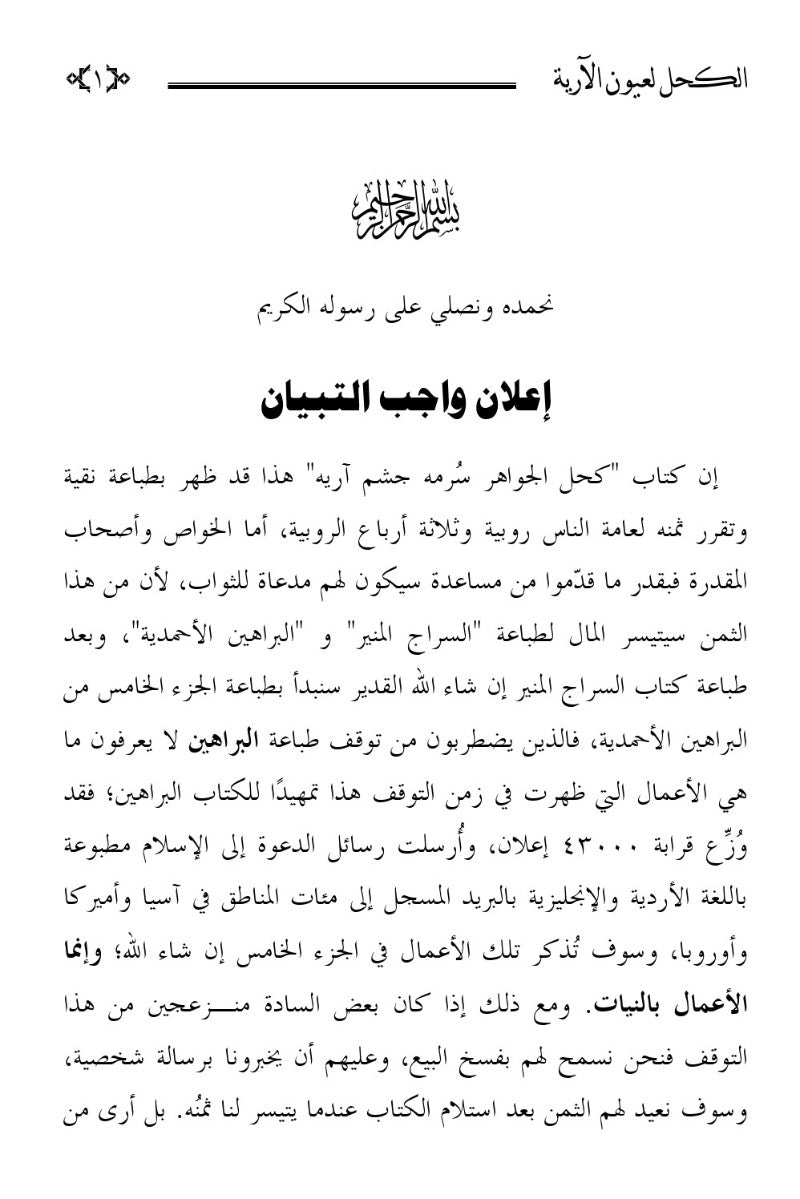 الكحل لعيون الآرية ١
بسم الله الرحمن الرحيم
نحمده ونصلي على رسوله الكريم
إعلان واجب التبيان
إن كتاب "كحل الجواهر سُرمه جشم آريه" هذا قد ظهر بطباعة نقية
وتقرر ثمنه لعامة الناس روبية وثلاثة أرباع الروبية، أما الخواص وأصحاب
المقدرة فبقدر ما قدّموا من مساعدة سيكون لهم مدعاة للثواب، لأن من هذا
الثمن سيتيسر المال لطباعة "السراج المنير" و "البراهين الأحمدية"، وبعد
طباعة كتاب السراج المنير إن شاء الله القدير سنبدأ بطباعة الجزء الخامس من
البراهين الأحمدية، فالذين يضطربون من توقف طباعة البراهين لا يعرفون ما
هي الأعمال التي ظهرت في زمن التوقف هذا تمهيدًا للكتاب البراهين؛ فقد
وُزِّع قرابة ٤٣٠٠٠ إعلان، وأُرسلت رسائل الدعوة إلى الإسلام مطبوعة
باللغة الأردية والإنجليزية بالبريد المسجل إلى مئات المناطق في آسيا وأميركا
وأوروبا، وسوف تُذكر تلك الأعمال في الجزء الخامس إن شاء الله؛ وإنما
الأعمال بالنيات. ومع ذلك إذا كان بعض السادة منـزعجين من هذا
التوقف فنحن نسمح لهم بفسخ البيع، وعليهم أن يخبرونا برسالة شخصية،
وسوف نعيد لهم الثمن بعد استلام الكتاب عندما يتيسر لنا ثمنُه. بل أرى من